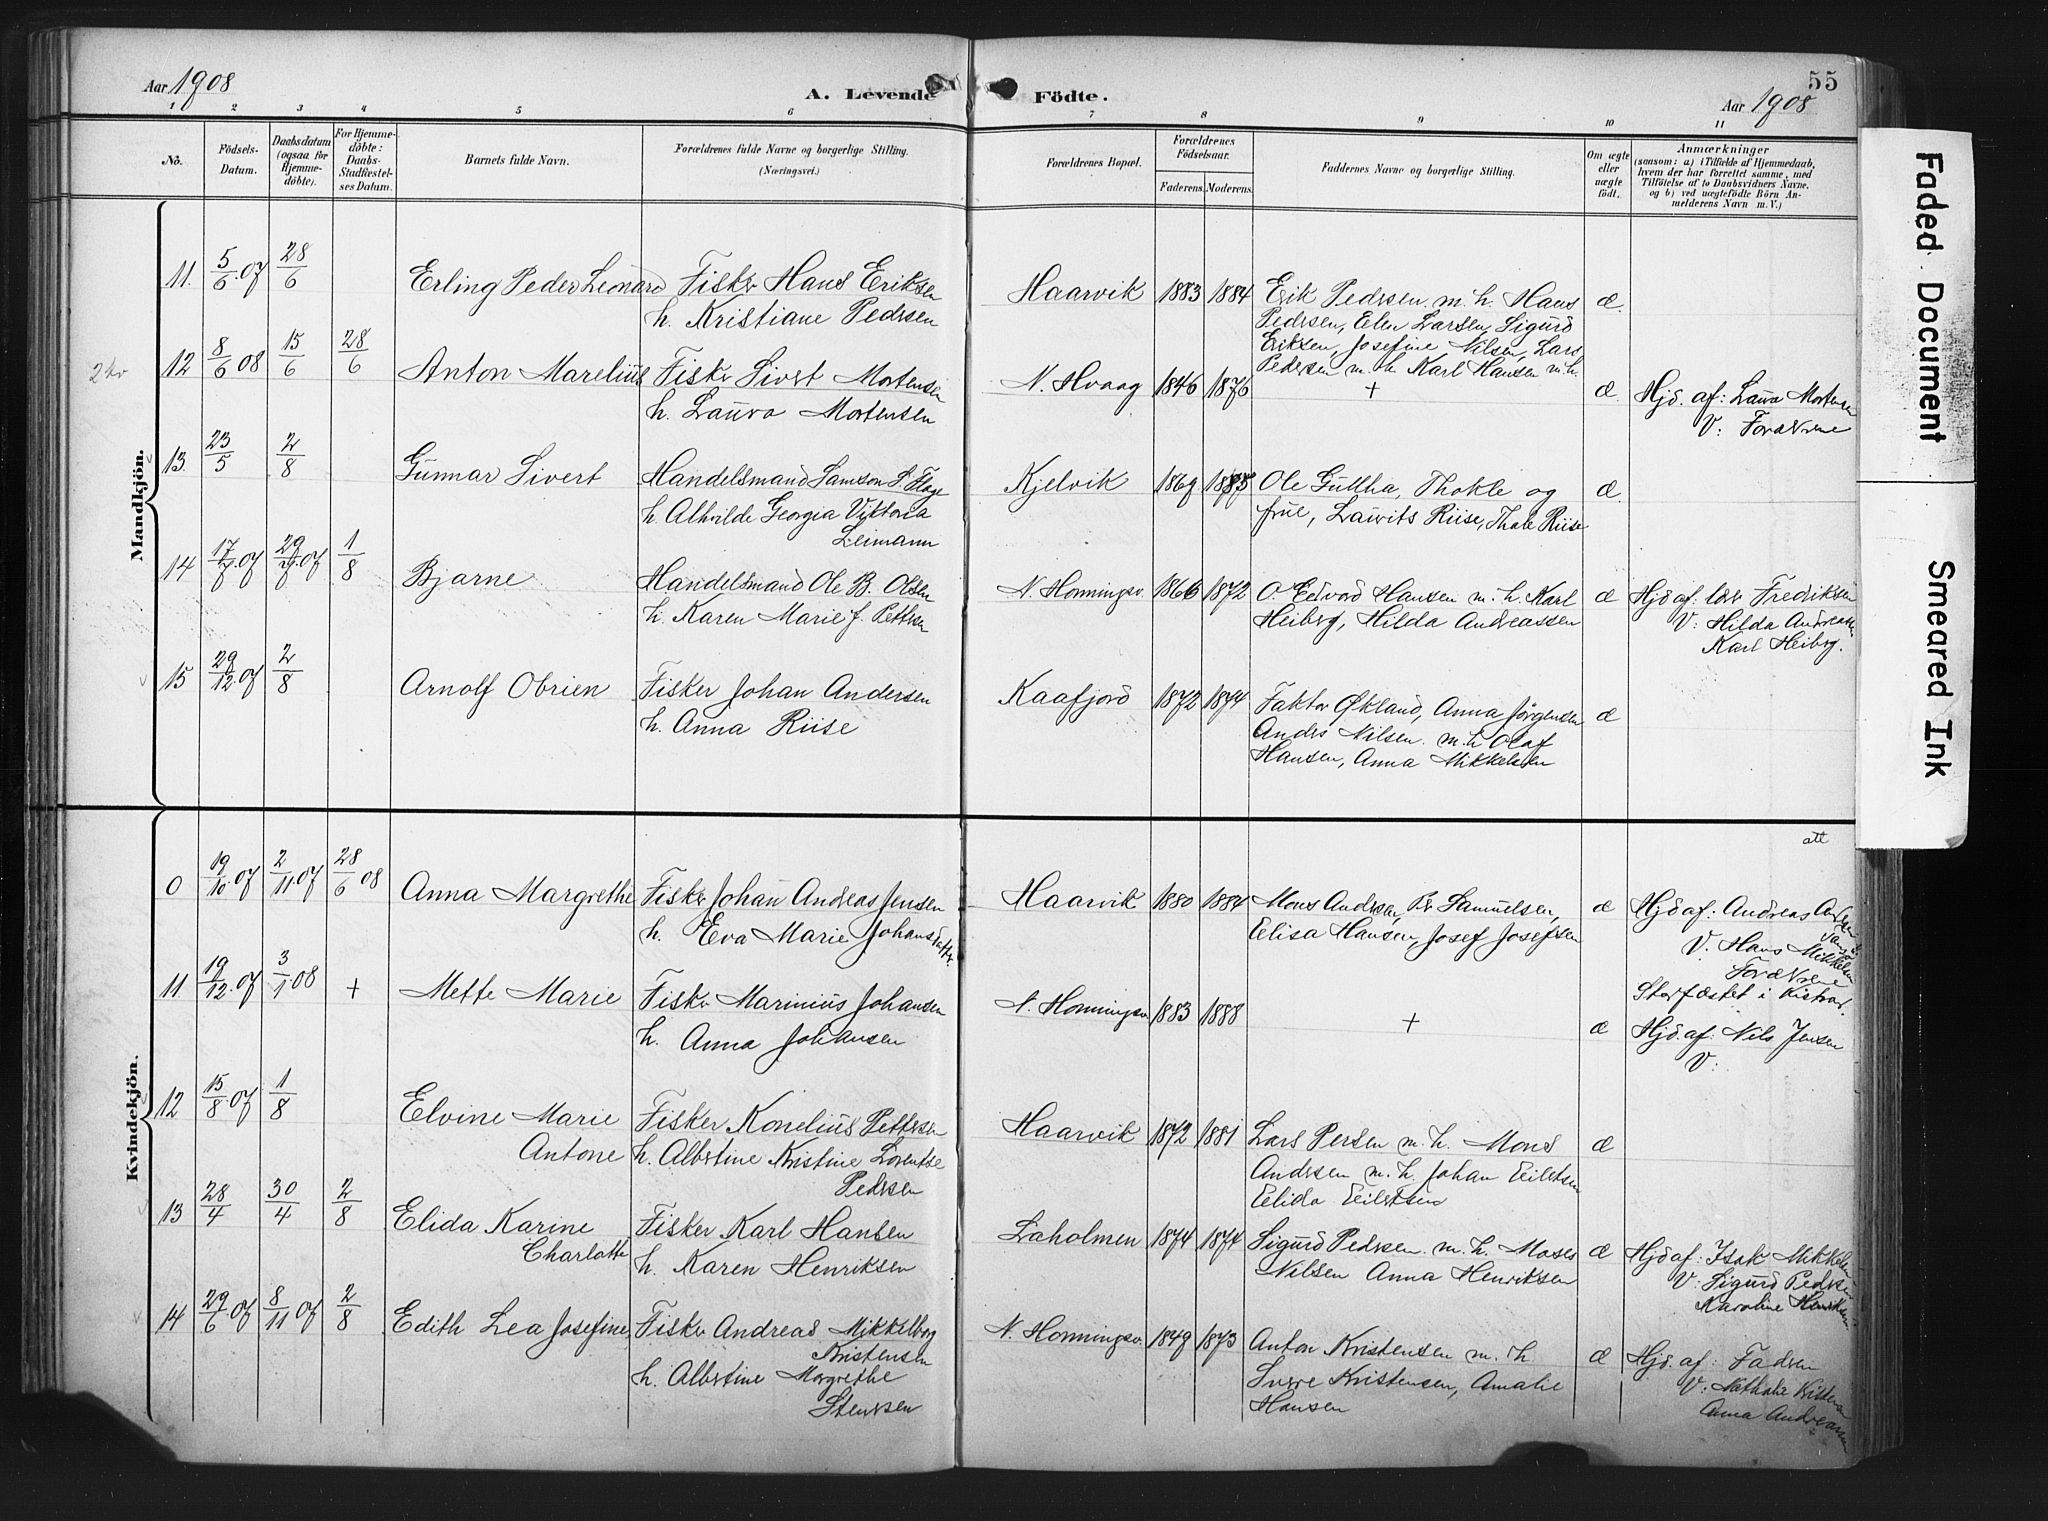 Aar 1908
A. Levende Födte.
55
Aar 1908
1 2 3 4 5 6 7 8 9 10 11
No.
Födsels-Datum.
Daabsdatum (ogsaa for Hjemmedöbte).
For Hjemmedöbte: Daabs-Stadfæstelses Datum.
Barnets fulde Navn.
Forældrenes fulde Navne og borgerlige Stilling. (Næringsvei.)
Forældrenes Bopæl.
Forældrenes Födselsaar.
Faderens. Moderens.
Faddernes Navne og borgerlige Stilling.
Om ægte eller uægte født.
Anmærkninger
(saasom: a) i Tilfælde af Hjemmedaab, hvem der har forrettet samme, med Tilföielse af to Daabsvidners Navne, og b) ved uægtefödte Börn Anmelderens Navn m. V.)
Mandkjön.
11. 5/6 07 28/6 Erling Peder Leonard Fisker Hans Eriksen
h. Kristiane Pedersen
Haarvik 1883 1884 Erik Pedersen m. h. Hans
Pedersen, Elen Larsen, Sigurd
Eriksen, Josefine Nilsen, Lars
Pedersen m. h. Karl Hansen m. h.
æ.
2 kr
12 8/6 08 15/6 28/6 Anton Marelius Fisker Sivert Mortensen
h. Laura Mortensen
N. Hvaag 1846 1876 + æ. Hjd. af: Laura Mortensen
V: Forældrene
13. 23/5 2/8 Gunnar Sivert Handelsmand Samson S. Flage
h. Alhvilde Georgia Viktoria
Leimann
Kjelvik 1869 1885 Ole Gullha, Thokle og
frue, Laurits Riise, Thale Riise
æ.
14 17/7 07 29/7 07 1/8 Bjarne Handelsmand Ole B. Olsen
h. Karen Marie f. Pettersen
N. Honningsv. 1866 1872 O. Edvard Hansen m. h. Karl
Heiberg, Hilda Andreassen
æ Hjd af: lær. Fredriksen
V: Hilda Andreassen
Karl Heiberg.
15 29/12 07 2/8 Arnolf Obrien Fisker Johan Andersen
h. Anna Riise
Kaafjord 1872 1874 Faktor Økland, Anna Jørgensen
Anders Nilsen m. h. Olaf
Hansen, Anna Mikkelsen
æ
Kvindekjön.
att
0 19/10 07 2/11 07 28/6 08 Anna Margrethe Fisker Johan Andreas Jensen
h. Eva Marie Johansdatter.
Haarvik 1880 1884 Mons Andersen, Pr. Samuelsen,
Elisa Hansen, Josef Josefsen
æ Hjd af: Andreas
V. Hans Mikkelsen
Forældrene
Stadfæstet i Kistrand.
11. 19/12 07 3/1 08 + Mette Marie Fisker Marinius Johansen
h. Anna Johansen
N. Honningsv. 1883 1888 + æ Hjd. af: Nils Jensen
V:
12 15/8 07 1/8 Elvine Marie
Antone
Fisker Konelius Pettersen
h. Albertine Kristine Lorentse
Pedersen
Haarvik 1872 1881 Lars Persen m. h. Mons
Andersen m. h. Johan Eilertsen
Elida Eilertsen
æ
13 28/4 30/4 2/8 Elida Karine
Charlotte
Fisker Karl Hansen
h. Karen Henriksen
Laholmen 1874 1874 Sigurd Pedersen m. h. Moses
Nilsen Anna Henriksen
æ Hjd af: Isak Mikkelsen
V: Sigurd Pedersen
Karoline Henriksen
14 29/6 07 8/11 07 2/8 Edith Lea Josefine Fisker Andreas Mikkelborg
Kristensen
h. Albertine Margrethe
Stensen
N. Honningsv. 1849 1873 Anton Kristensen m. h.
Sverre Kristensen, Amalie
Hansen
æ Hjd. af: Fadren
V: Nathalie Kristensen
Anna Andreassen
Faded Document
Smeared Ink